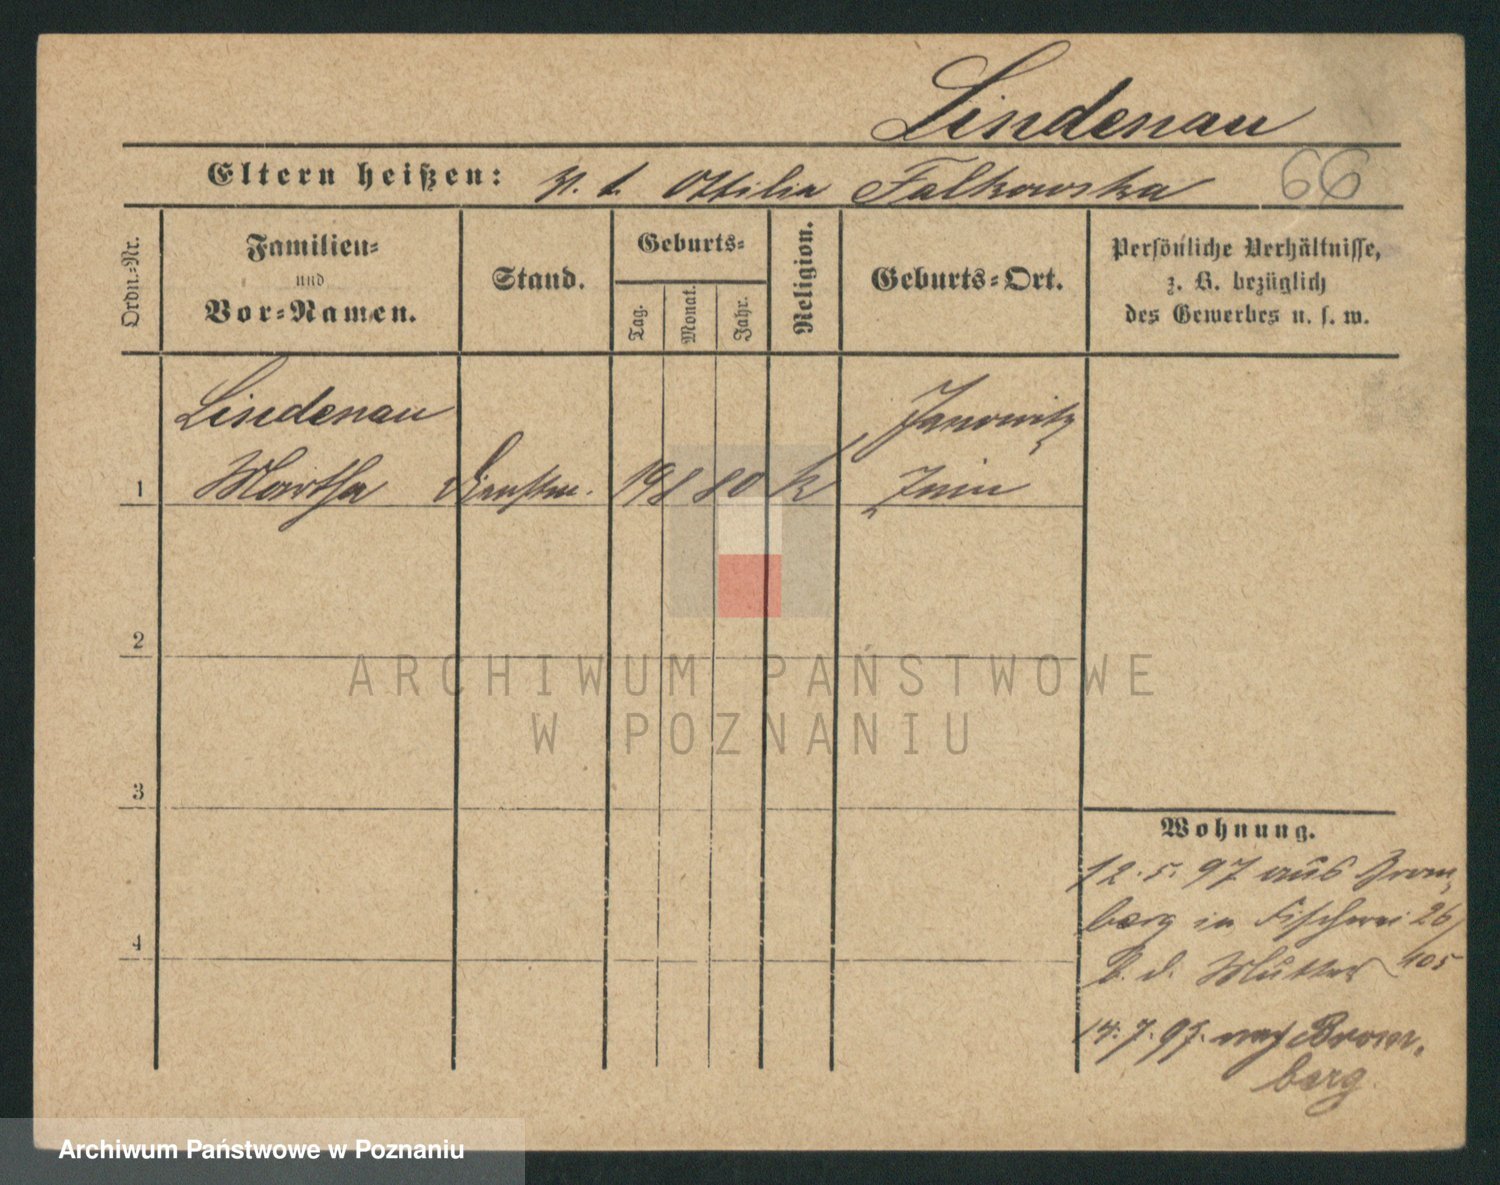 Lindenau
Eltern heißen: Ottilia Falkowska
66
Ordn.-Nr.
Familien-
und
Vor-Namen.
Stand.
Geburts-
Tag.
Monat.
Jahr.
Religion.
Geburts-Ort.
Persönliche Verhältnisse,
z. B. bezüglich
des Gewerbes u. s. w.
Lindenau
Janowitz
1 Martha Dienstm. 19 8 80 k Znin
2
3
4
Wohnung.
12.5.97 aus Brom-
berg in Fischerei 26/
b. d. Mutter 405
14.7.97. nach Brom-
berg.
ARCHIWUM PAŃSTWOWE
W POZNANIU
Archiwum Państwowe w Poznaniu